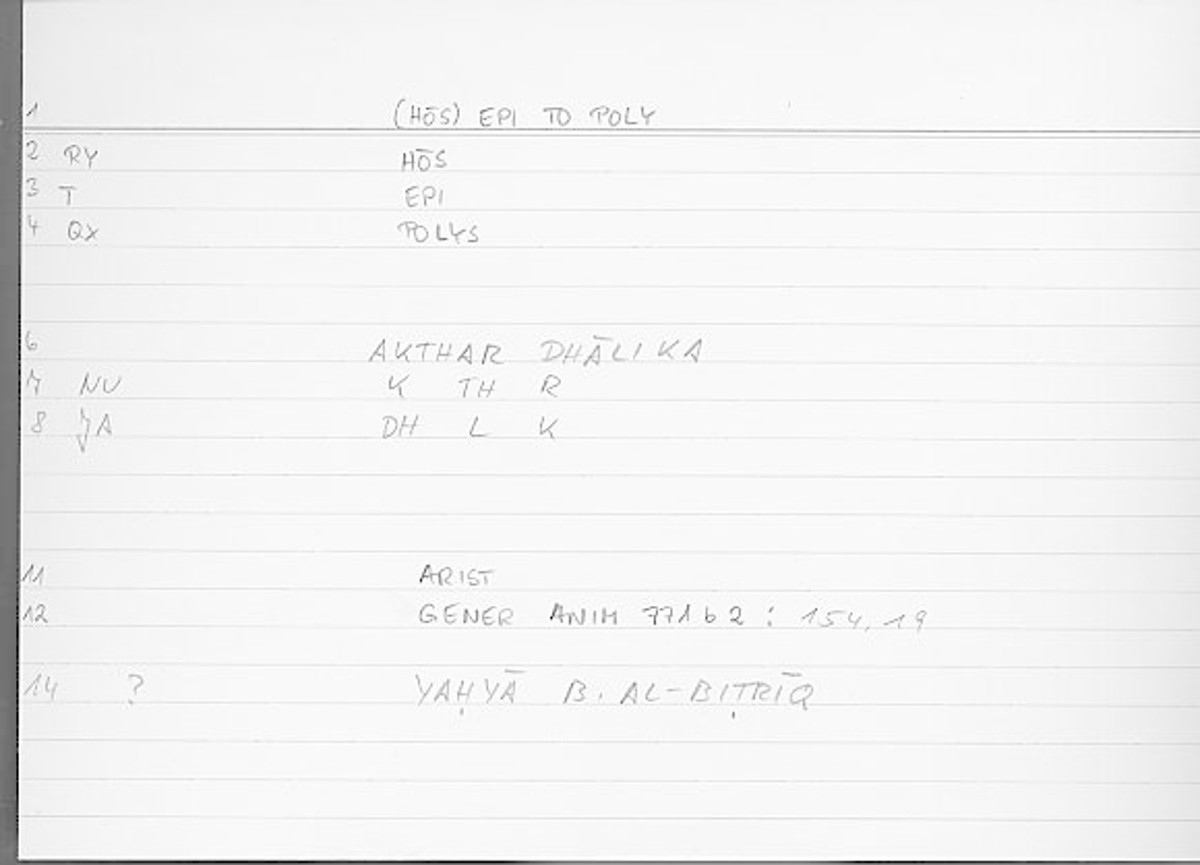 1 (HŌS) EPI TO POLY
2 RY HŌS
3 T EPI
4 QX POLYS
6 AKTHAR DHĀLIKA
7 NU K TH R
8 JA DH L K
11 ARIST
12 GENER ANIM 771 b 2 : 154, 19
14 ? YAḤYĀ B. AL-BIṬRĪQ